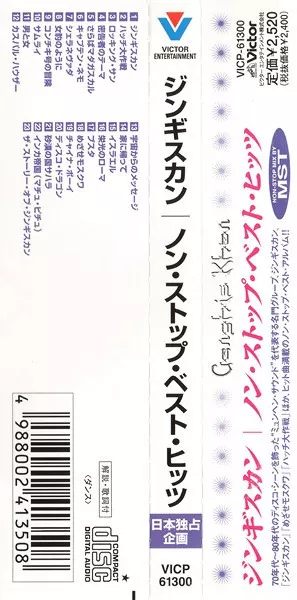 1 ジンギスカン
2 ハッチ大作戦
3 ロッキング・サン
4 密告者のテーマ
5 さらばマダガスカル
6 キャプテン・ネモ
7 シェラネヴァダ
8 女豹のように
9 コンチキ号の冒険
10 サムライ
11 男と女
12 カスパル・ハウザー
13 宇宙からのメッセージ
14 イスラエル
15 家に帰って
16 栄光のローマ
17 プスタ
18 めざせモスクワ
19 チャイナ・ボーイ
20 ディスコ・ドラゴン
21 砂漠の国サハラ
22 インカ帝国(マチュ・ピチュ)
23 ザ・ストーリー・オブ・ジンギスカン
解説・歌詞付
〈ダンス〉
4 988002 413508
COMPACT
disc
DIGITAL AUDIO
VICTOR
ENTERTAINMENT
ジンギスカン | ノン・ストップ・ベスト・ヒッツ
日本独占
企画
VICP
61300
Victor
ビクター エンタテインメント株式会社
VICP-61300
定価¥2,520
(税抜価格¥2,400)
NON-STOP MIX BY
MST
ジンギスカン | ノン・ストップ・ベスト・ヒッツ
70年代〜80年代のディスコ・シーンを飾った"ミュンヘン・サウンド"を代表する名門グループ、ジンギスカン。
「ジンギスカン」「めざせモスクワ」「ハッチ大作戦」ほか、ヒット曲満載のノン・ストップ・ベスト・アルバム!!